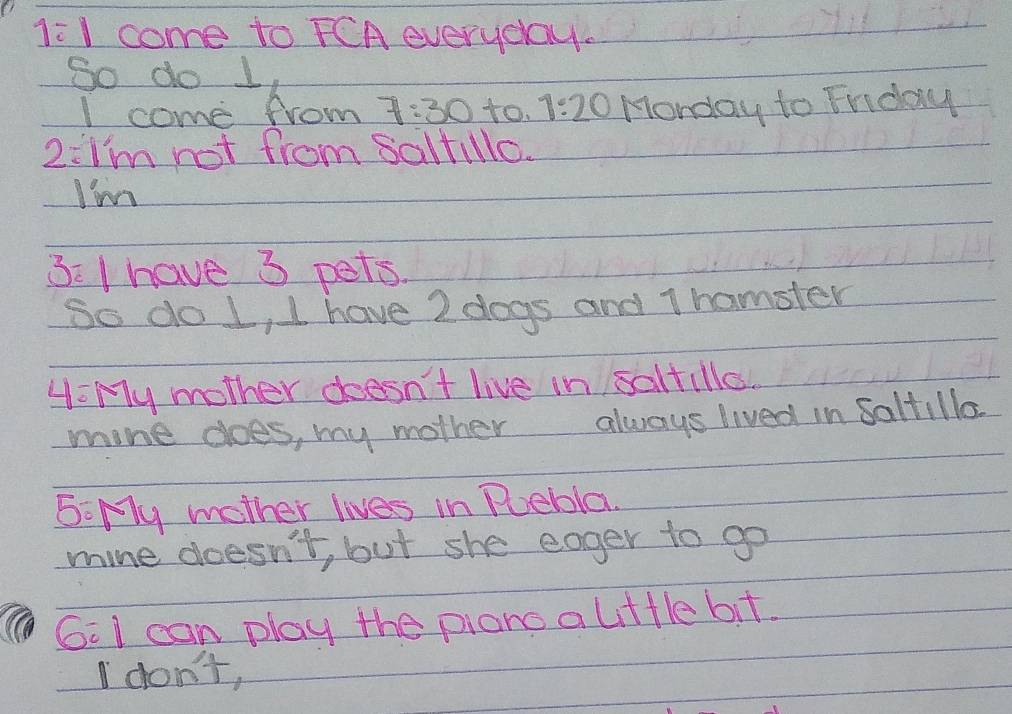 1: I come to FCA everyday.
So do I,
I come from 7:30 to. 1:20 Monday to Friday
2: I'm not from Saltillo.
I'm
3: I have 3 pets.
So do I, I have 2 dogs and 1 hamster
4: My mother doesn't live in saltillo.
mine does, my mother always lived in Saltillo.
5: My mother lives in Puebla.
mine doesn't, but she eager to go
6: I can play the piano a little bit.
I don't,